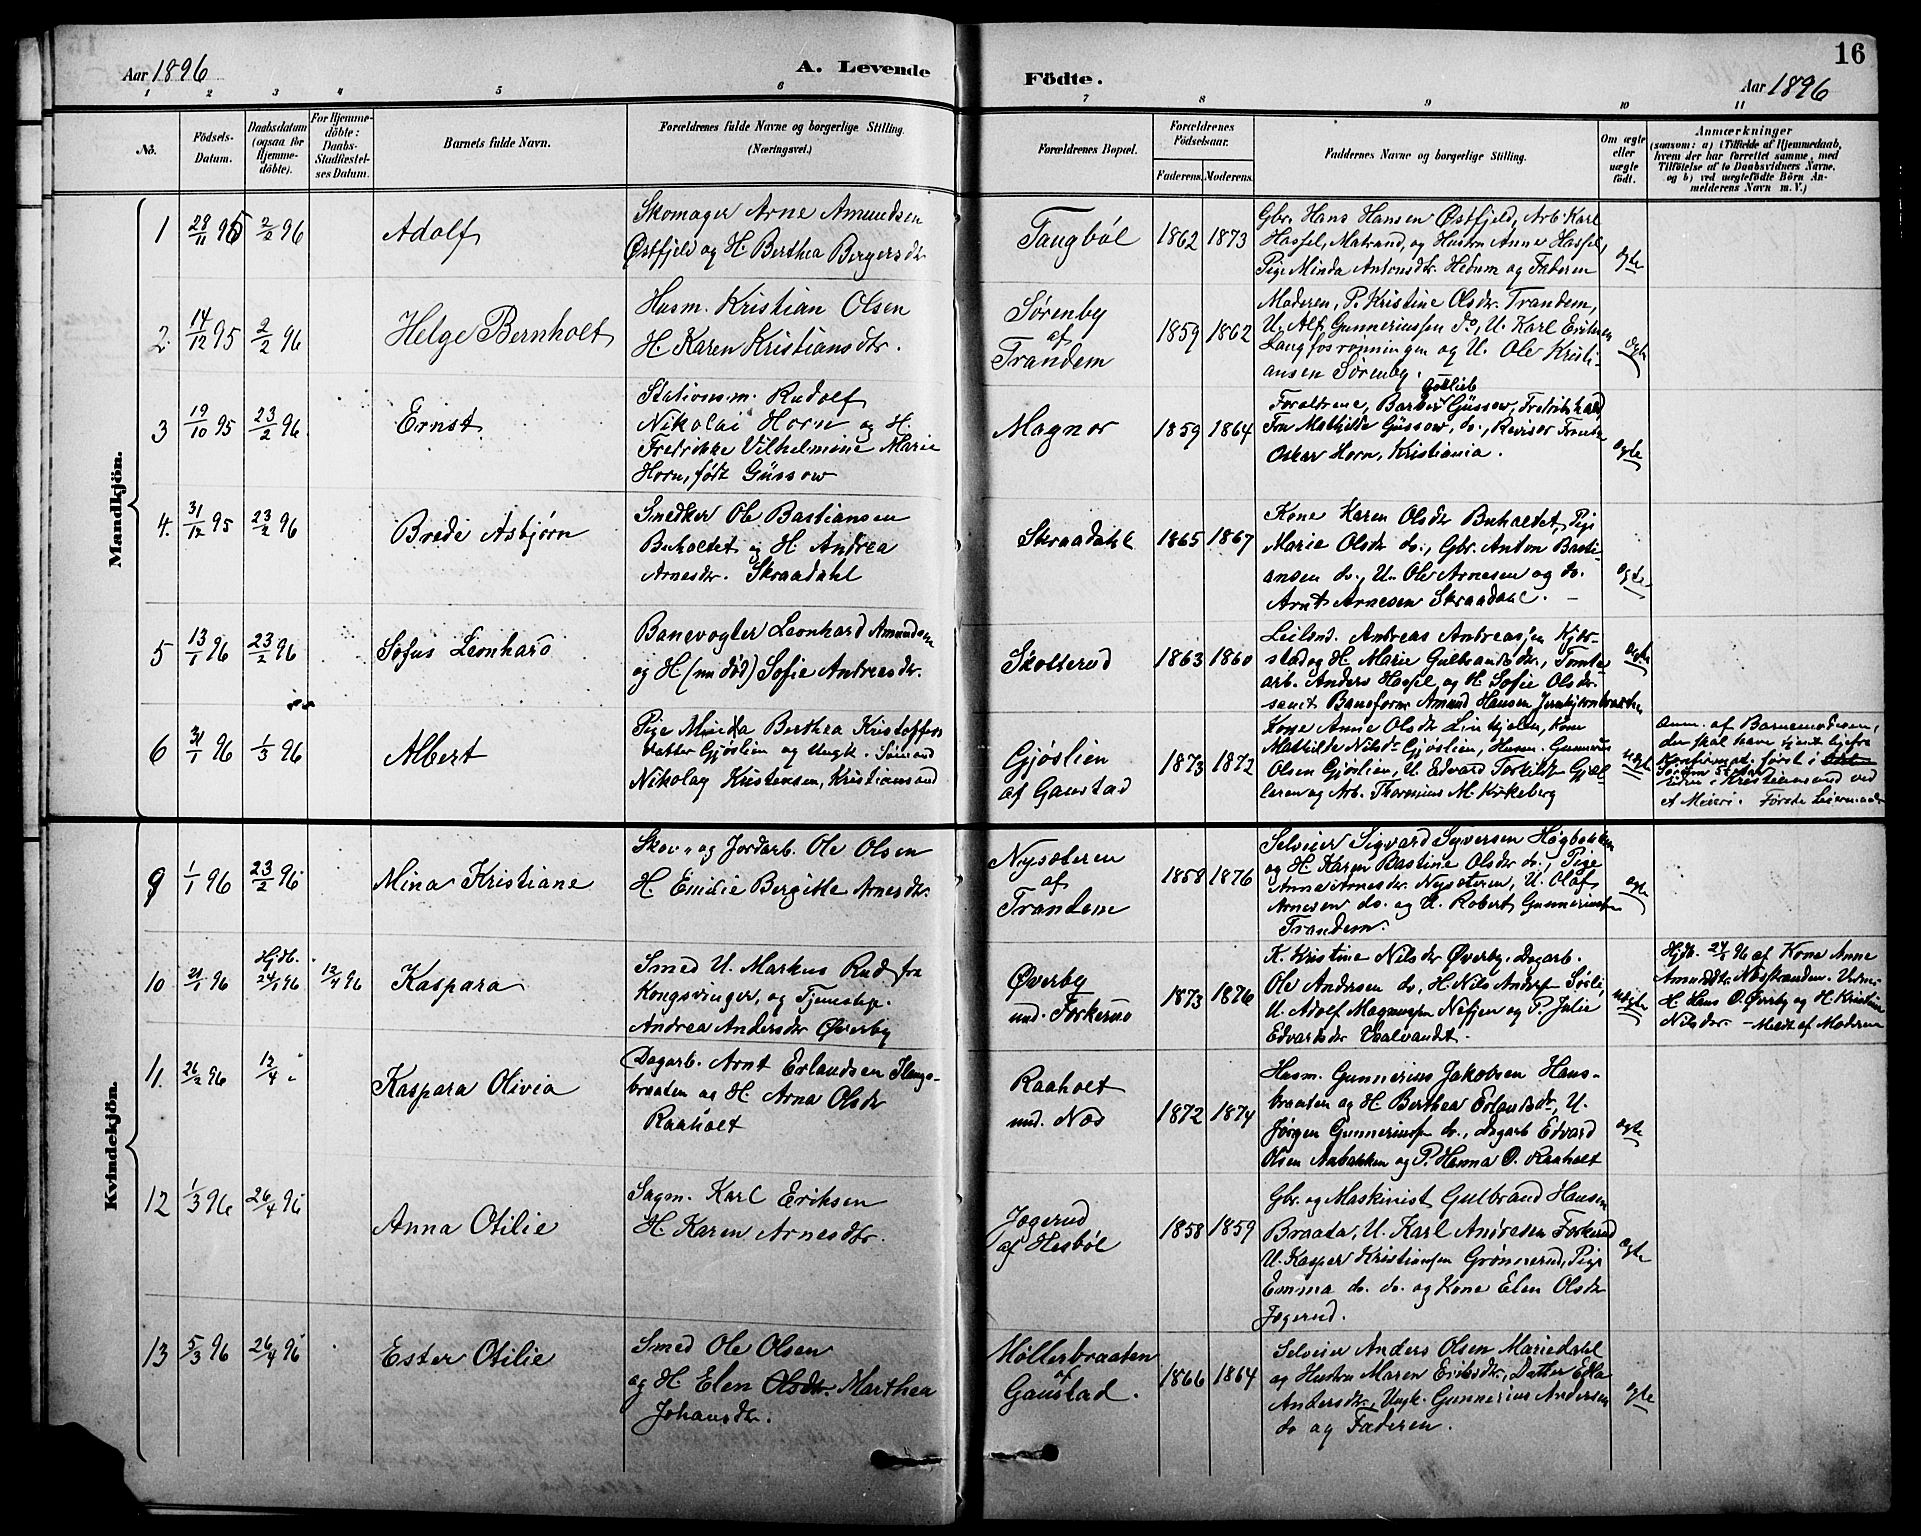 16
Aar 1896
A. Levende
Födte.
Aar 1896
1 2 3 4 5 6 7 8 9 10 11
No.
Födsels-
Datum.
Daabsdatum
(ogsaa for
Hjemme-
döbte).
For Hjemme-
döbte:
Daabs-
Stadfæstel-
ses Datum.
Barnets fulde Navn.
Forældrenes fulde Navne og borgerlige Stilling.
(Næringsvei.)
Forældrenes Bopæl.
Forældrenes
Födselsaar.
Faderens. Moderens.
Faddernes Navne og borgerlige Stilling.
Om ægte
eller
uægte
födt.
Anmærkninger
(saasom: a) i Tilfælde af Hjemmedaab,
hvem der har forrettet samme, med
Tilföielse af to Daabsvidners Navne,
og b) ved uægtefödte Börn An-
melderens Navn m. V.)
Mandkjön.
1 28/11 95 2/2 96
Adolf
Skomager Arne Amundsen
Østfjeld og H. Berthea Bergersdtr
Tangbøl
1862 1873
Gbr. Hans Hansen Østfjeld, Arb. Karl
Hassel, Matrand, og Hustru Anne Hassel,
Pige Minda Antonsdtr. Hedum og Faderen
ægte
2. 14/12 95 2/2 96
Helge Bernholt
Husm. Kristian Olsen
H. Karen Kristiansdtr.
Sørenby
af
Trandem
1859 1862
Moderen, P. Kristine Olsdtr. Trandem,
U. Alf Gunneriussen do, U. Karl Eriksen
Langfosrønningen og U. Ole Kristi-
ansen Sørenby.
ægte
3 19/10 95 23/2 96
Ernst
Stationsm. Rudolf
Nikolai Horn og H.
Fredrikke Vilhelmine Marie
Horn, født Güssow
Magnor
1859 1864
Gottlieb
Forældrene, Barber Güssow, Fredrikshald,
Fru Mathilde Güssow, do., Revisor Frantz
Oskar Horn, Kristiania.
ægte
4. 31/12 95 23/2 96
Brede Asbjørn
Snedker Ole Bastiansen
Buholtet og H. Andrea
Arnesdtr. Skraadahl
Skraadahl
1865 1867
Kone Karen Olsdtr Buholtet, Pige
Marie Olsdtr do., Gbr. Anton Basti-
ansen do., U. Ole Arnesen og do.
Arnt Arnesen Skraadahl.
ægte
5 13/1 96 23/2 96
Sofus Leonhard
Banevogter Leonhard Amundsen
og H (nu død) Sofie Andreasdtr.
Skotterud
1863 1860
Leilend. Andreas Andreassen Kjør-
stad og H. Marie Gulbrandsdtr., Tomte-
arb. Anders Hassel og H. Sofie Olsdtr.
samt Baneform. Amund Hansen
ægte
6 31/1 96 1/3 96
Albert
Pige Minda Berthea Kristoffers-
datter Gjøslien og Ungk. Sømand
Nikolay Kristensen, Kristiansand
Gjøslien
af Gaustad
1873 1872
Kone Anne Olsdtr Linkjølen, Kone
Mathilde Nilsdtr Gjøslien, Husm. Gunnerius
Olsen Gjøslien, U. Edvard Torkilds
og Arb. Thorenius M. Kirkeberg
uægte
Anm. af Barnemoderen,
der skal have tjent
i Kristiansund ved
Første Leiermaal
Kvindekjön.
9 1/1 96 23/2 96
Mina Kristiane
Skov- og Jordarb. Ole Olsen
H. Emilie Bergitte Arnesdtr.
Nysæteren
af
Trandem
1858 1876
Selveier Sigvard Syversen Høgbakken
og H. Karen Bastine Olsdtr do., Pige
Anne Arnesdtr. Nysæteren, U. Olaf
Arnesen do. og U. Robert Gunneriussen
Trandem.
ægte
10 21/1 96 Hjdb. 24/1 96 12/4 96
Kaspara
Smed U. Markus Rud fra
Kongsvinger, og Tjenestep.
Andrea Andersdtr Øverby
Øverby
und. Forkerud
1873 1876
K. Kristine Nilsdtr Øverby, Dagarb.
Ole Andersen do, H. Nils Anders. Sølie,
U. Adolf Magnussen Nefjen og P. Julie
Edvardsdtr Vaalvandet.
uægte
Hjdb. 24/1 96 af Kone Anne
Amundsdtr. Næstranden. Vidne
H. Hans O. Øverby og H. Kristine
Nilsdtr. – Meldt af Moderen
11. 26/2 96 12/4 "
Kaspara Olivia
Dagarb. Arnt Erlandsen Hangs-
braaten og H. Arna Olsdtr
Raaholt
Raaholt
und. Næs
1872 1874
Husm. Gunnerius Jakobsen Hans-
braaten og H. Berthea Erlandsdtr, U.
Jørgen Gunneriussen do., Dagarb Edvard
Olsen Aabakken og P. Hanna O. Raaholt
ægte
12 1/3 96 26/4 96
Anna Otilie
Sagm. Karl Eriksen
H. Karen Arnesdtr.
Jøgerud
af Hesbøl
1858 1859
Gbr. og Maskinist Gulbrand Hansen
Braata, U. Karl Andresen Forkerud
U. Kasper Kristiansen Grønnerud, Pige
Emma do. do. og Kone Elen Olsdtr
Jøgerud.
ægte
13 5/3 96 26/4 96
Ester Otilie
Smed Ole Olsen
og H. Elen Olsdtr. Marthea
Johansdtr.
Møllerbraaten
af
Gaustad.
1866 1864
Selveier Anders Olsen Mariedahl
og Hustru Maren Eriksdtr., Datter Edla
Andersdtr., Ungk. Gunnerius Andersen
do og Faderen.
ægte